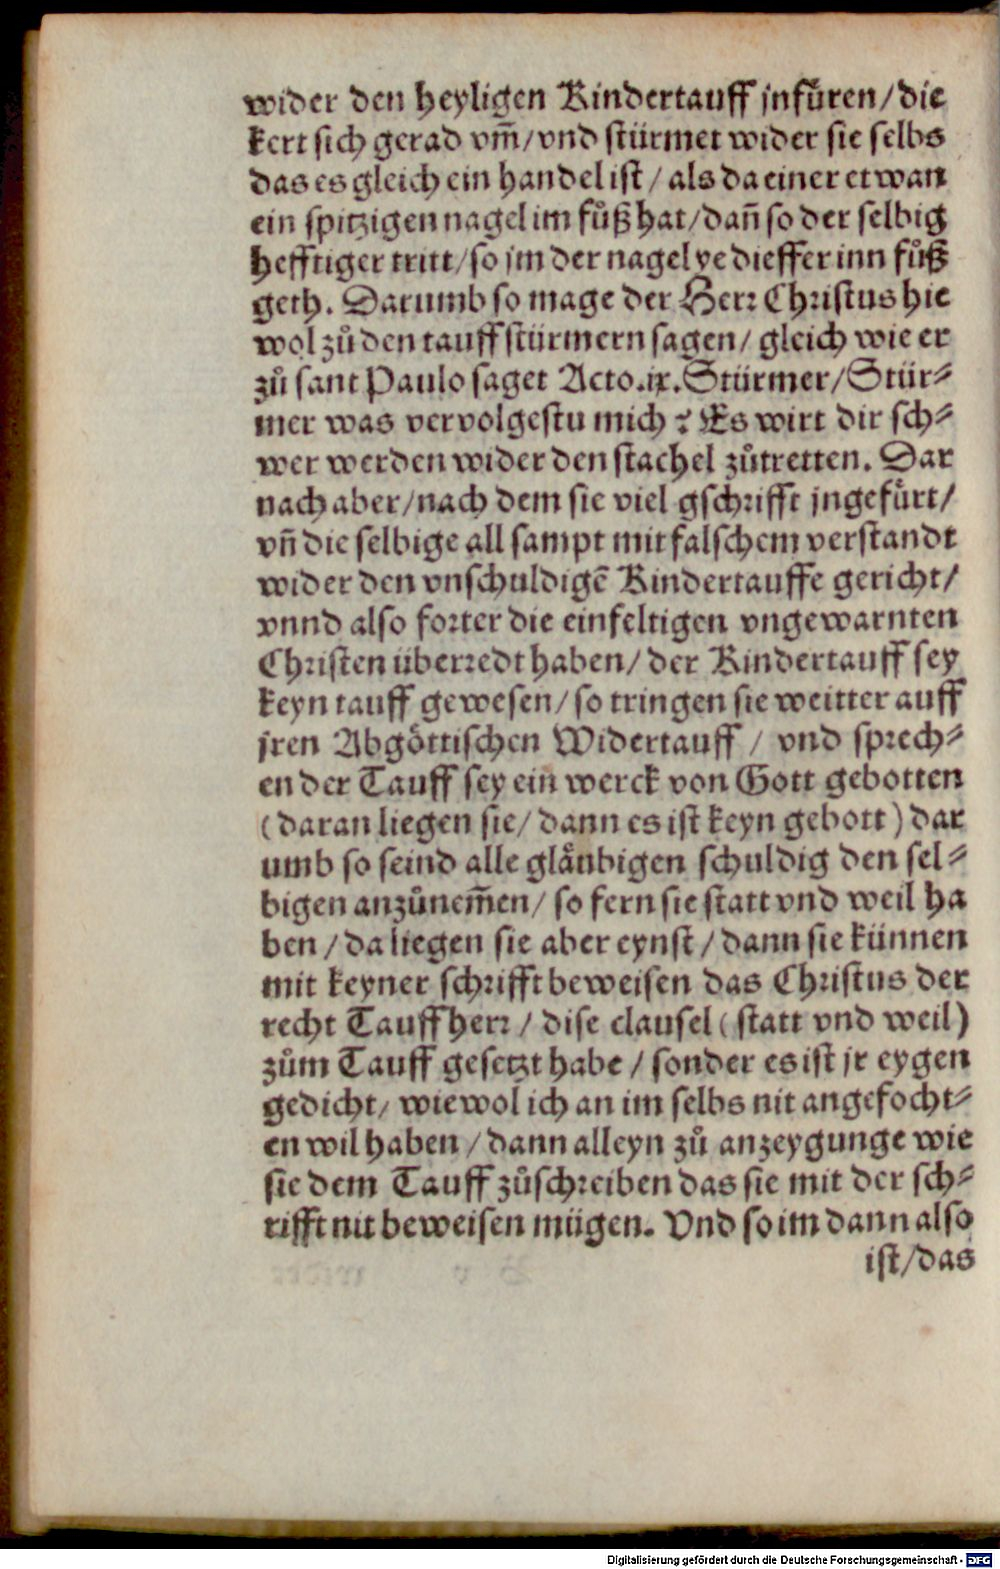 wider den heyligen Kindertauff jnfuͤren/die
kert sich gerad vm̃/vnd stürmet wider sie selbs
das es gleich ein handel ist/als da einer etwan
ein spitzigen nagel im fůß hat/dañ so der selbig
hefftiger tritt/so jm der nagel ye dieffer inn fůß
geth. Darumb so mage der Herr Christus hie
wol zů den tauff stürmern sagen/gleich wie er
zů sant Paulo saget Acto.ix. Stürmer/Stür⸗
mer was vervolgestu mich? Es wirt dir sch⸗
wer werden wider den stachel zůtretten. Dar
nach aber/nach dem sie viel gschrifft jngefuͤrt/
vñ die selbige all sampt mit falschem verstandt
wider den vnschuldigẽ Kindertauffe gericht/
vnnd also forter die einfeltigen vngewarnten
Christen überredt haben/der Kindertauff sey
keyn tauff gewesen/so tringen sie weitter auff
jren Abgoͤttischen Widertauff/vnd sprech⸗
en der Tauff sey ein werck von Gott gebotten
(daran liegen sie/dann es ist keyn gebott) dar
umb so seind alle glaͤubigen schuldig den sel⸗
bigen anzůnem̃en/so fern sie statt vnd weil ha
ben/da liegen sie aber eynst/dann sie künnen
mit keyner schrifft beweisen das Christus der
recht Tauffherr/dise clausel (statt vnd weil)
zům Tauff gesetzt habe/sonder es ist jr eygen
gedicht/wiewol ich an im selbs nit angefocht⸗
en wil haben/dann alleyn zů anzeygunge wie
sie dem Tauff zůschreiben das sie mit der sch⸗
rifft nit beweisen mügen. Vnd so im dann also
ist/das
Digitalisierung gefördert durch die Deutsche Forschungsgemeinschaft - DFG